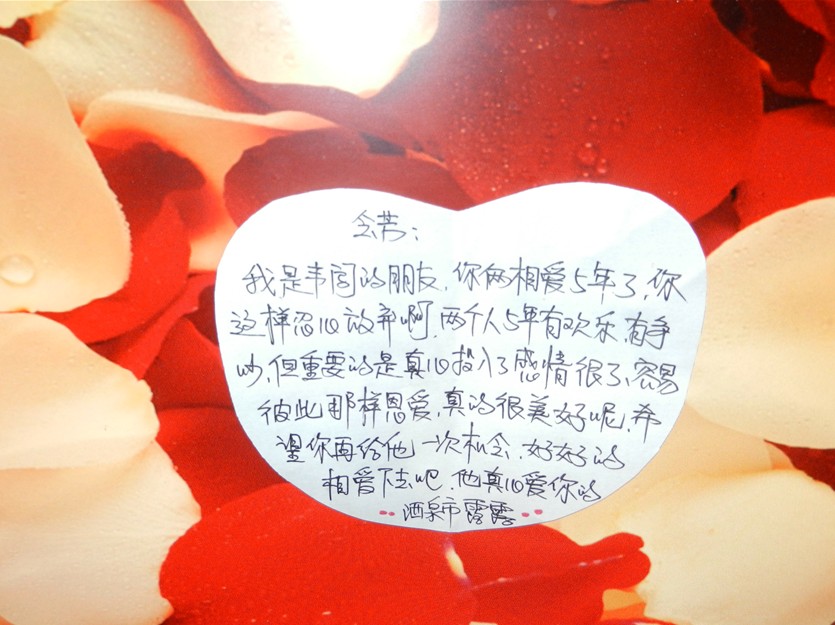 会芳：
我是韦闯的朋友，你俩相爱5年了，你
这样忍心放弃啊，两个人5年有欢乐，有争
吵，但重要的是真心投入了感情很不容易
彼此那样恩爱，真的很美好呢，希
望你再给他一次机会，好好的
相爱下去吧，他真心爱你的
酒泉市露露